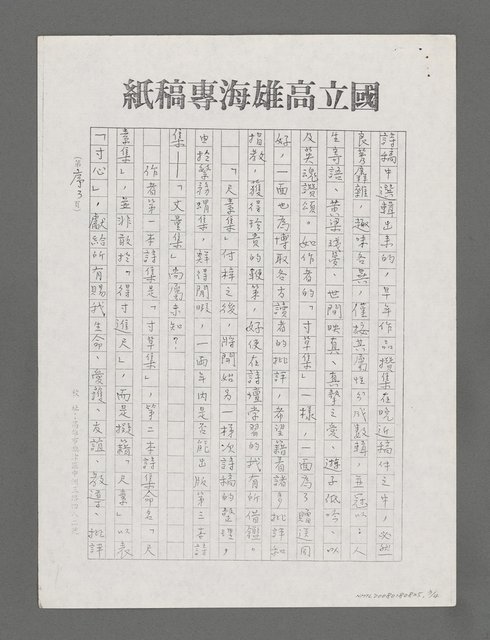 國立高雄海專稿紙
詩稿中選輯出來的，早年作品攙集在晚近稿件之中，必然
良莠雜，趣味各異，僅按其屬性分成數輯，並冠以：人
生寄語、黃粱璞夢、世間映真、真摯之愛、遊子低吟、以
及英魂讚頌。如作者的「寸草集」一樣，一面為了贈送同
好，一面也為博取各方讀者的批評，希望藉着諸多批評和
指教，獲得珍貴的鞭策，好使在詩壇學習的我有所借鑑。
「尺素集」付梓之後，將開始另一梯次詩稿的整理，
由於繁務蝟集，鮮得閒暇，一兩年內是否能出版第三本詩
集——「丈量集」尚屬未知？
作者第一本詩集是「寸草集」，第二本詩集命名「尺
素集」，並非敢於「得寸進尺」，而是擬藉「尺素」以表
「寸心」，獻給所有賜我生命、愛護、友誼、教導、批評
（第序3頁）
NMTL20080180805, 3/4